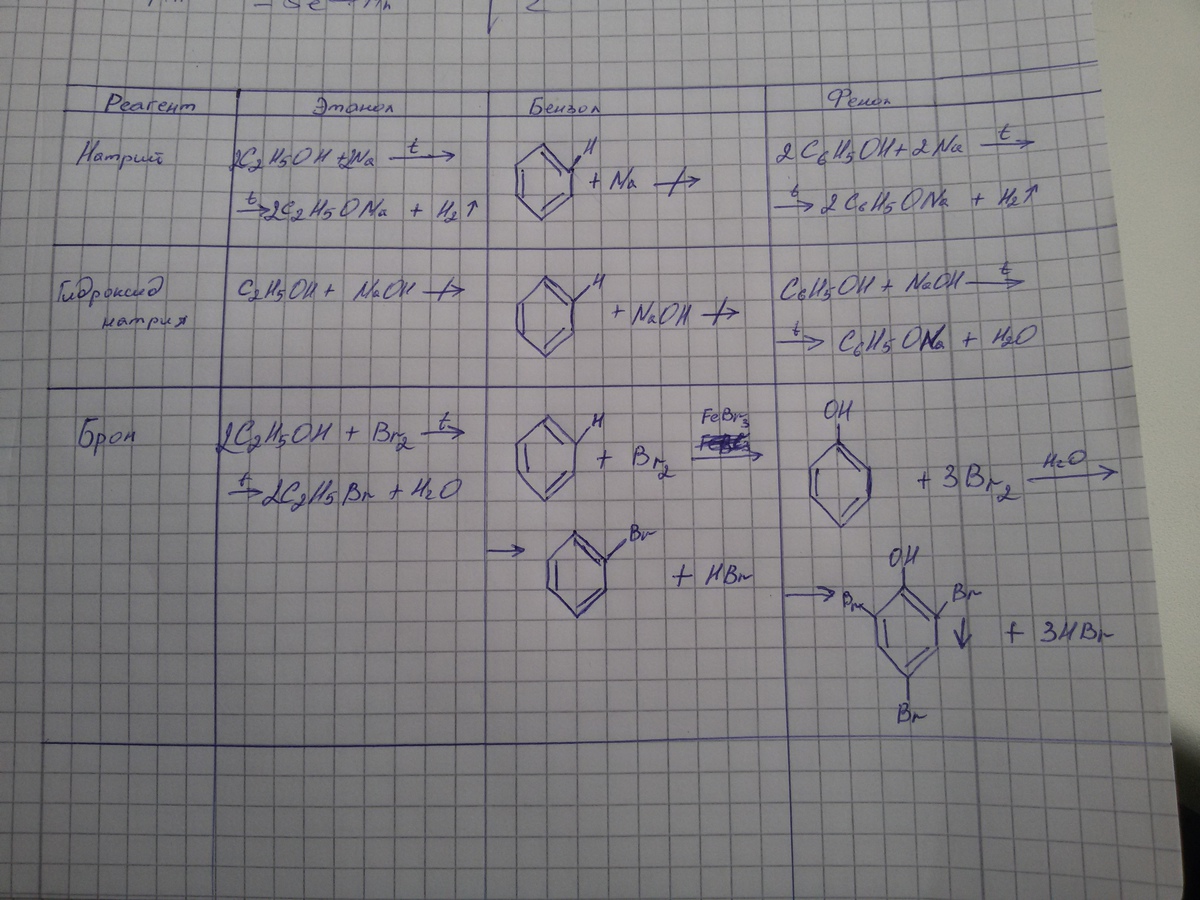 Реагент Этанол Бензол Фенол
Натрий 2C2H5OH + 2Na t→ H + Na ↛ 2C6H5OH + 2Na t→
t→ 2C2H5ONa + H2↑ t→ 2C6H5ONa + H2↑
Гидроксид натрия C2H5OH + NaOH ↛ H + NaOH ↛ C6H5OH + NaOH t→
t→ C6H5ONa + H2O
Бром 2C2H5OH + Br2 t→ H + Br2 FeBr3 → OH + 3Br2 H2O →
t→ 2C2H5Br + H2O → Br + HBr → OH Br Br Br ↓ + 3HBr